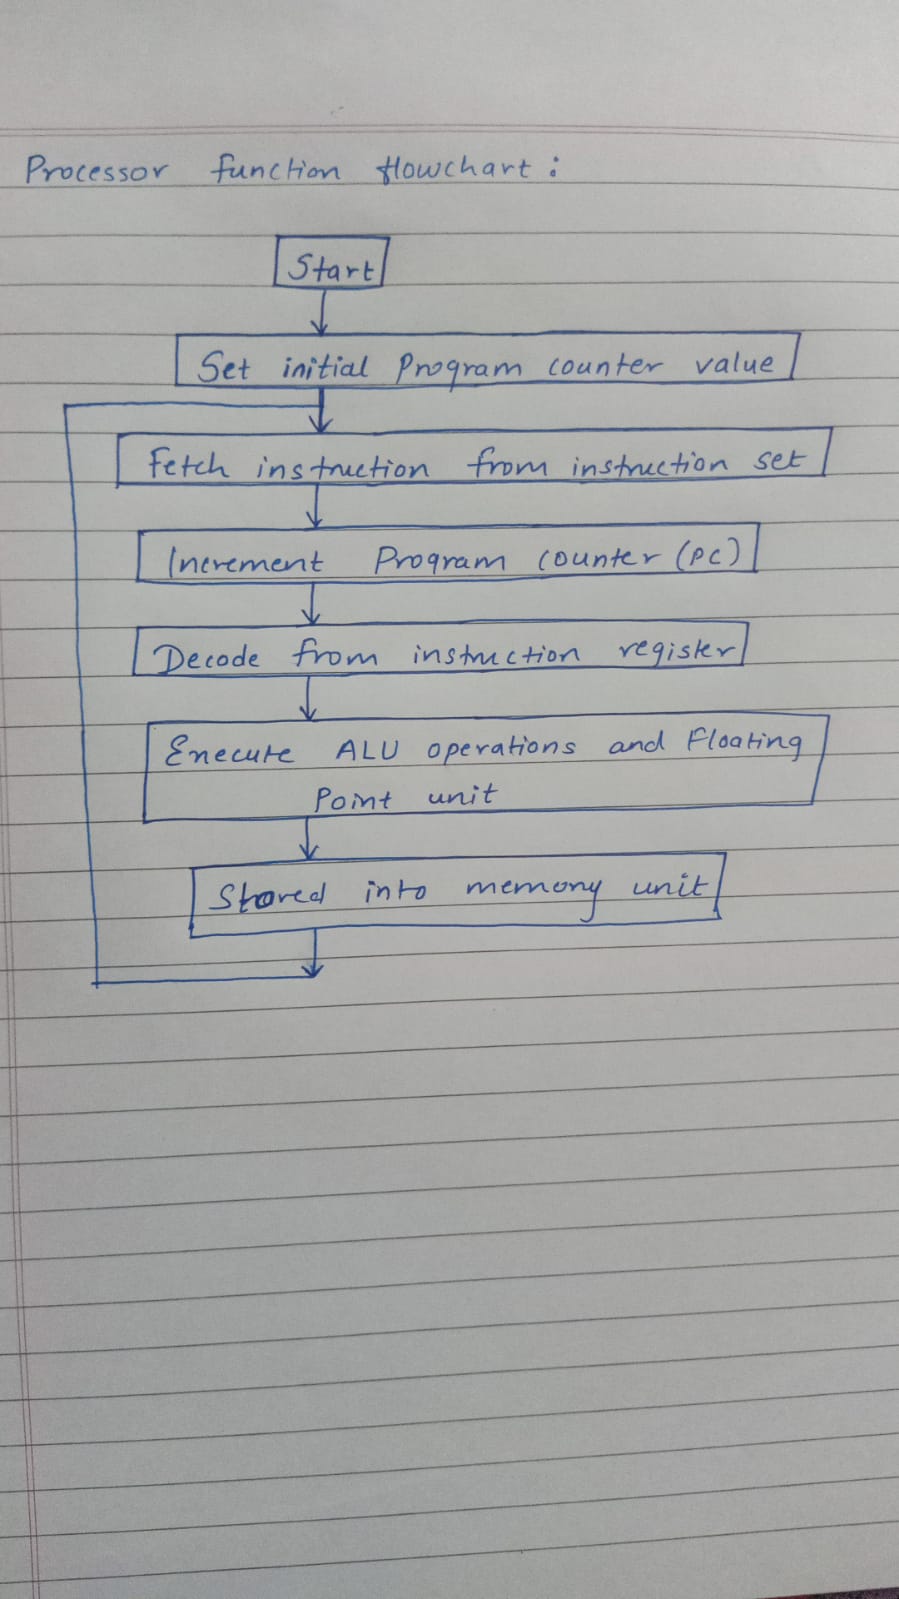 Processor function flowchart :
Start
Set initial Program counter value
Fetch instruction from instruction set
Increment Program counter (PC)
Decode from instruction register
Execute ALU operations and Floating
Point unit
Stored into memory unit